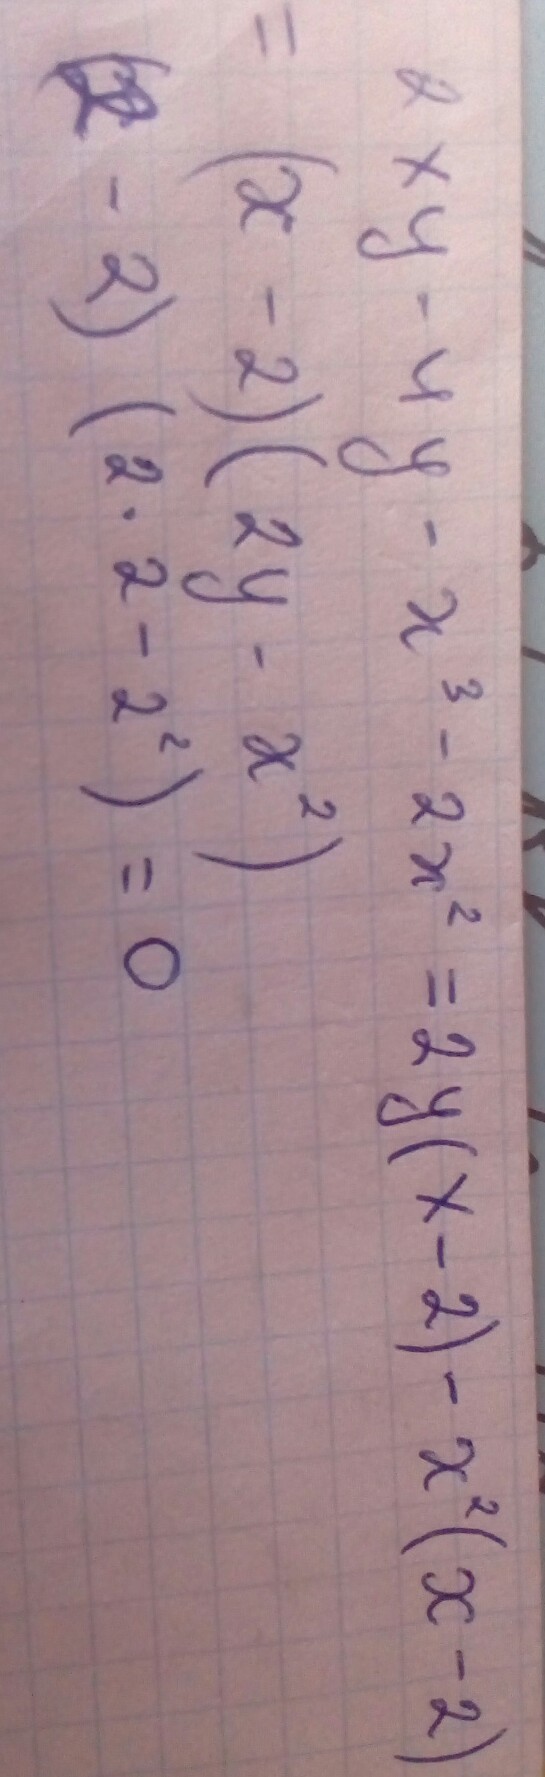 2xy - 4y - x³ - 2x² = 2y(x - 2) - x²(x - 2)
= (x - 2)(2y - x²)
(2 - 2)(2 · 2 - 2²) = 0